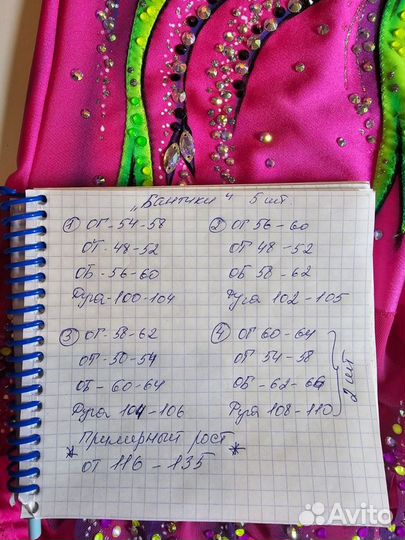 „Бантики" 5 шт.
① ОГ - 54-58
ОТ - 48-52
ОБ - 56-60
Дуга - 100-104
② ОГ 56-60
ОТ 48-52
ОБ 58-62
Дуга 102-105
③ ОГ - 58-62
ОТ - 50-54
ОБ - 60-64
Дуга 104-106
④ ОГ 60-64
ОТ 54-58
ОБ - 62-66
Дуга 108-110
2 шт
* Примерный рост *
от 116 - 135
Avito